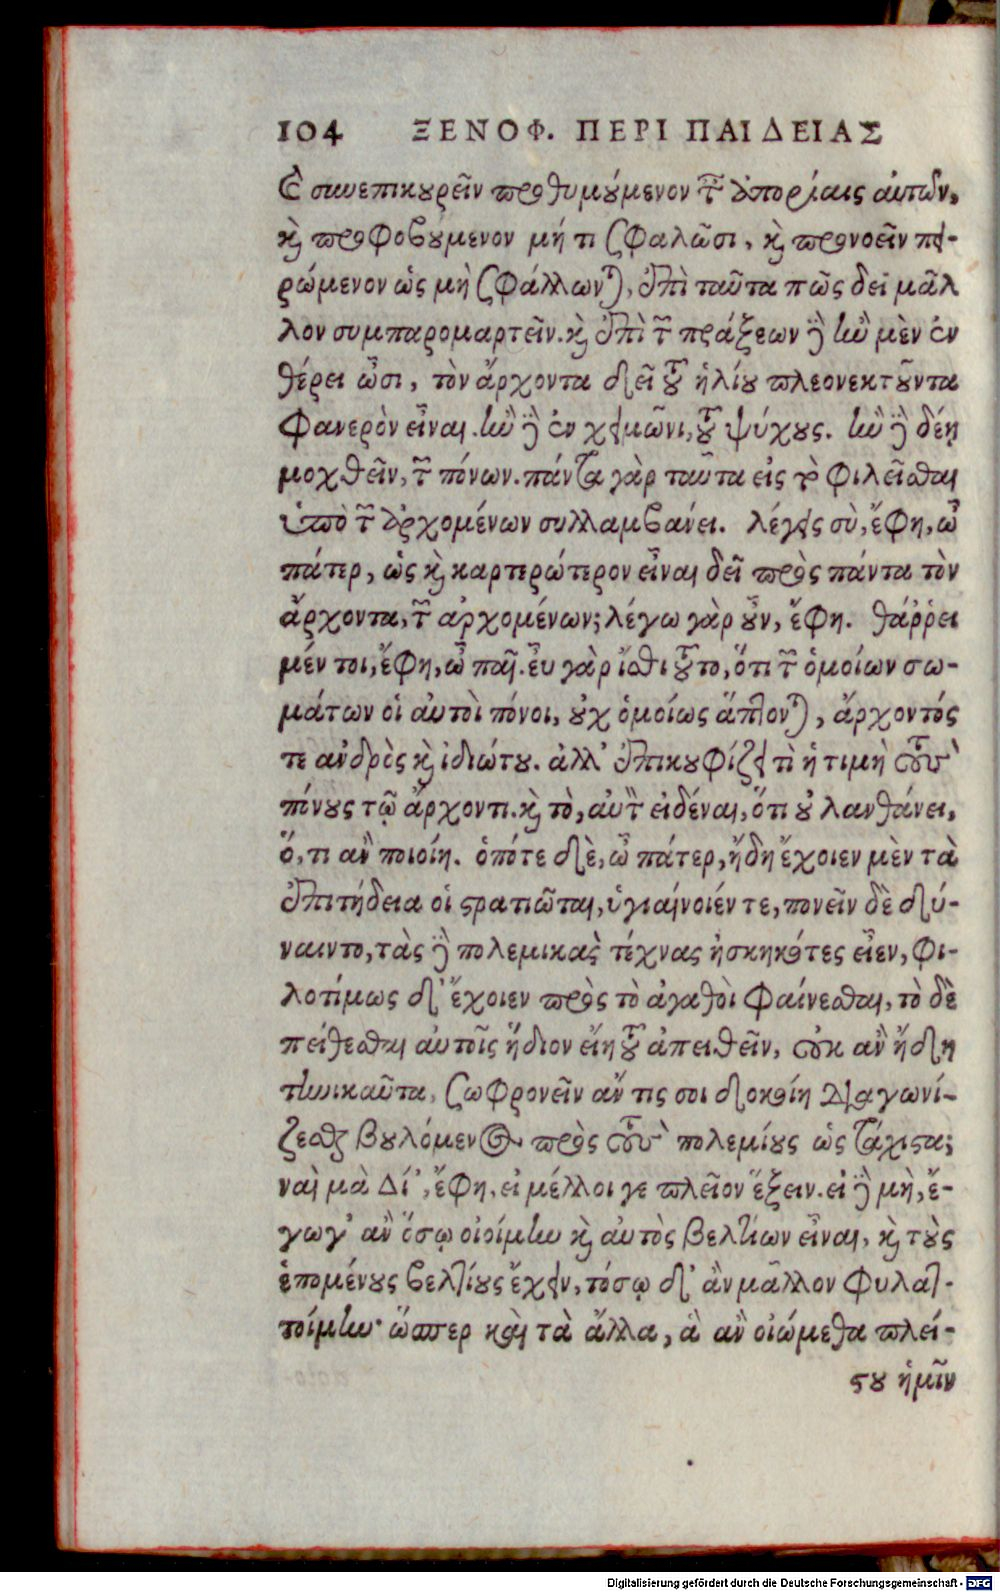 104 ΞΕΝΟΦ. ΠΕΡΙ ΠΑΙΔΕΙΑΣ
καὶ συνεπικουρεῖν προθυμούμενον ταῖς ἀπορίαις αὐτῶν,
καὶ προφοβούμενον μή τι σφαλῶσι, καὶ προνοεῖν πει-
ρώμενον ὡς μὴ σφάλλωνται, ἐπὶ ταῦτα πῶς δεῖ μᾶλ
λον συμπαρομαρτεῖν. καὶ ἐπὶ τῶν πράξεων δὲ ἢν μὲν ἐν
θέρει ὦσι, τὸν ἄρχοντα δεῖ τοῦ ἡλίου πλεονεκτοῦντα
φανερὸν εἶναι. ἢν δὲ ἐν χειμῶνι, τοῦ ψύχους. ἢν δὲ δέῃ
μοχθεῖν, τῶν πόνων. πάντα γὰρ ταῦτα εἰς τὸ φιλεῖσθαι
ὑπὸ τῶν ἀρχομένων συλλαμβάνει. λέγεις σὺ, ἔφη, ὦ
πάτερ, ὡς καὶ καρτερώτερον εἶναι δεῖ πρὸς πάντα τὸν
ἄρχοντα, τῶν ἀρχομένων; λέγω γὰρ οὖν, ἔφη. θάῤῥει
μέν τοι, ἔφη, ὦ παῖ. εὖ γὰρ ἴσθι τοῦτο, ὅτι τῶν ὁμοίων σω-
μάτων οἱ αὐτοὶ πόνοι, οὐχ ὁμοίως ἅπτονται, ἄρχοντός
τε ἀνδρὸς καὶ ἰδιώτου. ἀλλ' ἐπικουφίζει τὶ ἡ τιμὴ τοὺς
πόνους τῷ ἄρχοντι. καὶ τὸ, αὐτὸν εἰδέναι, ὅτι οὐ λανθάνει,
ὅ, τι ἂν ποιοίη. ὁπότε δὲ, ὦ πάτερ, ἤδη ἔχοιεν μὲν τὰ
ἐπιτήδεια οἱ στρατιῶται, ὑγιαίνοιέν τε, πονεῖν δὲ δύ-
ναιντο, τὰς δὲ πολεμικὰς τέχνας ἠσκηκότες εἶεν, φι-
λοτίμως δ' ἔχοιεν πρὸς τὸ ἀγαθοὶ φαίνεσθαι, τὸ δὲ
πείθεσθαι αὐτοῖς ἥδιον εἴη τοῦ ἀπειθεῖν, οὐκ ἂν ἤδη
τηνικαῦτα, σωφρονεῖν ἄν τις σοι δοκοίη διαγωνί-
ζεσθαι βουλόμενος πρὸς τοὺς πολεμίους ὡς τάχιστα;
ναὶ μὰ Δί', ἔφη, εἰ μέλλοι γε πλεῖον ἕξειν. εἰ δὲ μὴ, ἔ-
γωγ' ἂν ὅσῳ οἰοίμην καὶ αὐτὸς βελτίων εἶναι, καὶ τοὺς
ἑπομένους βελτίους ἔχειν, τόσῳ δ' ἂν μᾶλλον φυλατ-
τοίμην· ὥσπερ καὶ τὰ ἄλλα, ἃ ἂν οἰώμεθα πλεί-
στου ἡμῖν
Digitalisierung gefördert durch die Deutsche Forschungsgemeinschaft - DFG